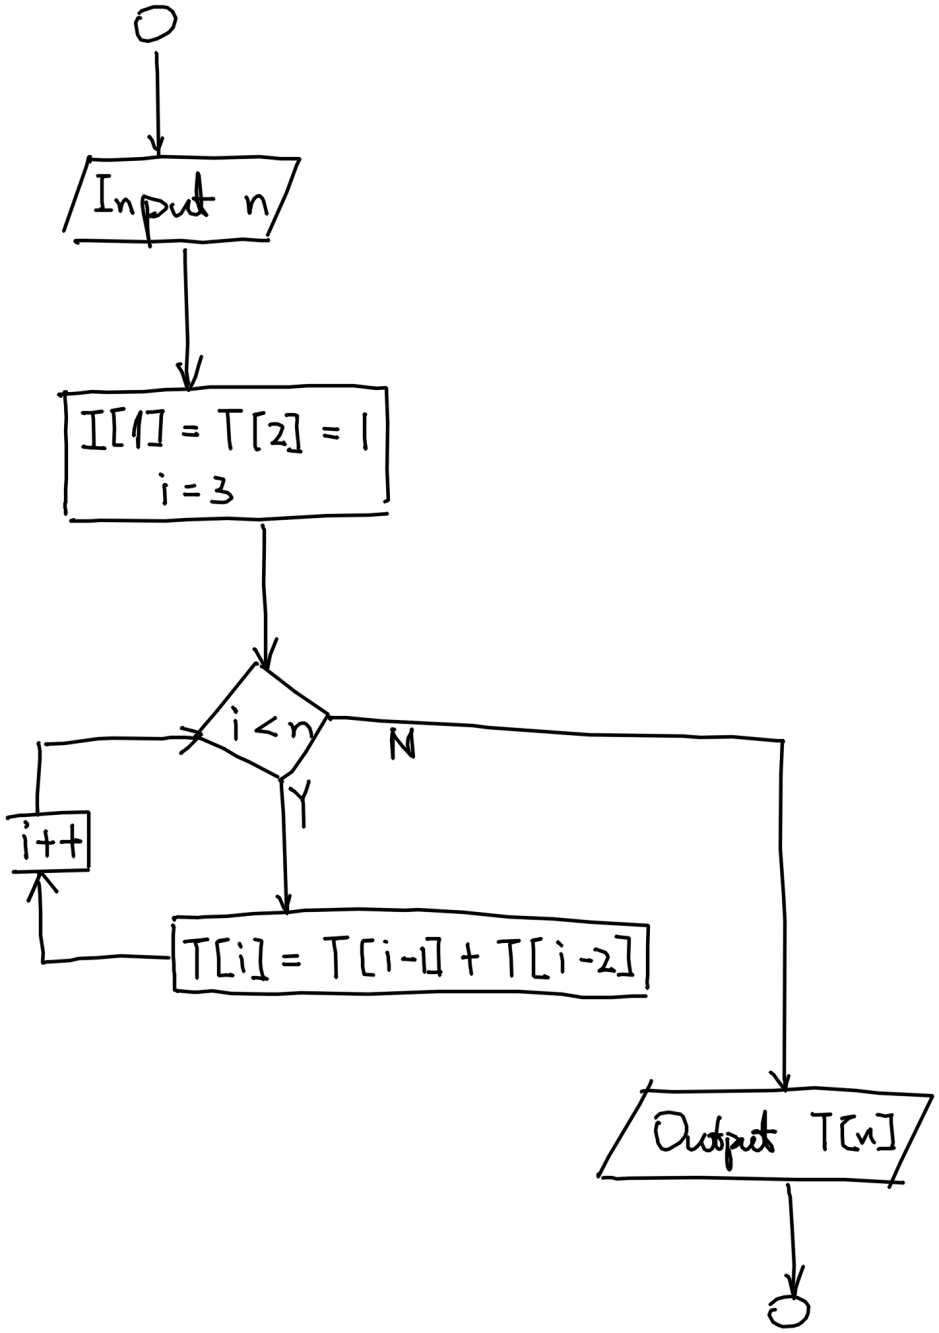 Input n
I[1] = T[2] = 1
i = 3
i < n
N
Y
i++
T[i] = T[i-1] + T[i-2]
Output T[n]